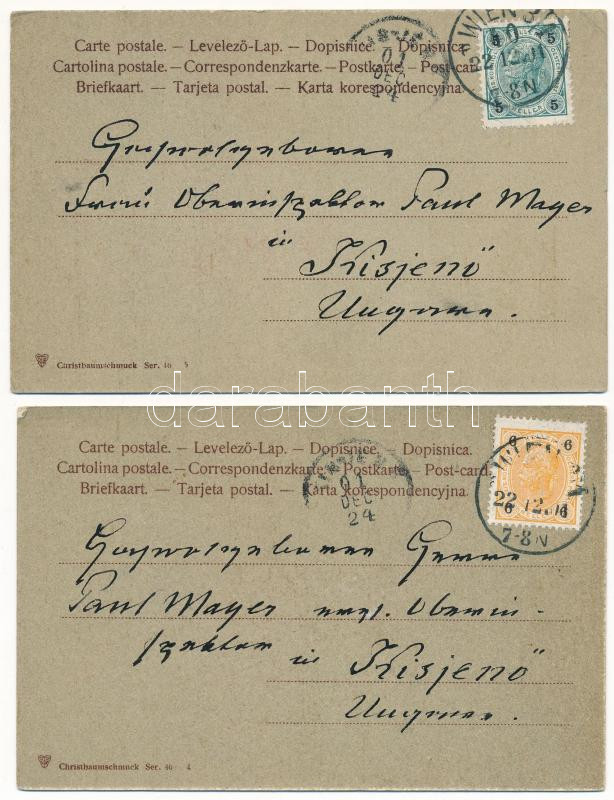 Carte postale. — Levelező-Lap. — Dopisnice. — Dopisnica.
Cartolina postale. — Correspondenzkarte. — Postkarte — Post-card.
Briefkaart. — Tarjeta postal. — Karta korespondencyjna.
01
DEC
24
WIEN
22 12 01
8N
5 5
HELLER
5 5
Hochwohlgeboren
Frau Oberinspektor Paul Mayer
in
Kisjenő
Ungarn.
Christbaumschmuck Ser. 46 5
darabanth
Carte postale. — Levelező-Lap. — Dopisnice. — Dopisnica.
Cartolina postale. — Correspondenzkarte — Postkarte — Post-card.
Briefkaart. — Tarjeta postal. — Karta korespondencyjna.
01
DEC
24
WIEN
22 12 01
7-8N
6 6
6 6
Hochwohlgeboren Herrn
Paul Mayer Oberin-
spektor in
Kisjenő
Ungarn.
Christbaumschmuck Ser. 46 4